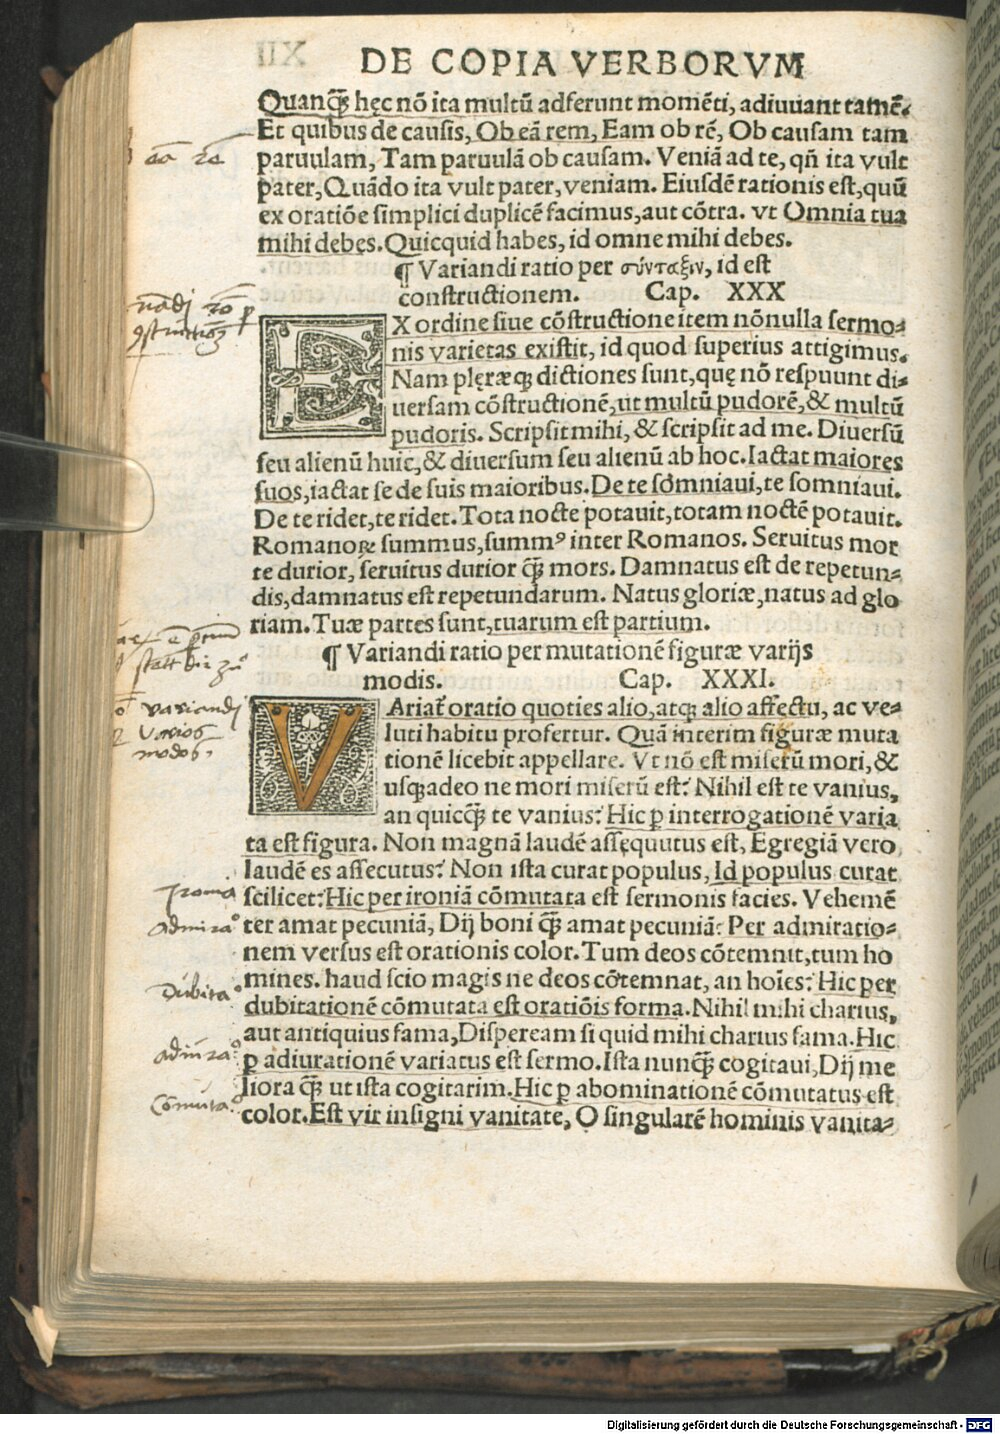 DE COPIA VERBORVM
Quanq̃ȝ hęc nõ ita multũ adferunt momẽti, adiuuant tamẽ.
Et quibus de causis, Ob eã rem, Eam ob rẽ, Ob causam tam
paruulam, Tam paruulã ob causam. Veniã ad te, qñ ita vult
pater, Quãdo ita vult pater, veniam. Eiusdẽ rationis est, quũ
ex oratiõe simplici duplicẽ facimus, aut cõtra. vt Omnia tua
mihi debes. Quicquid habes, id omne mihi debes.
¶ Variandi ratio per σύνταξιν, id est
constructionem. Cap. XXX
EX ordine siue cõstructione item nõnulla sermo⸗
nis varietas existit, id quod superius attigimus.
Nam plęræqȝ dictiones sunt, quę nõ respuunt di⸗
uersam cõstructionẽ, ut multũ pudorẽ, & multũ
pudoris. Scripsit mihi, & scripsit ad me. Diuersũ
seu alienũ huic, & diuersum seu alienũ ab hoc. Iactat maiores
suos, iactat se de suis maioribus. De te somniaui, te somniaui.
De te ridet, te ridet. Tota nocte potauit, totam noctẽ potauit.
Romanoꝝ summus, summꝰ inter Romanos. Seruitus mor
te durior, seruitus durior q̃ȝ mors. Damnatus est de repetun⸗
dis, damnatus est repetundarum. Natus gloriæ, natus ad glo
riam. Tuæ partes sunt, tuarum est partium.
¶ Variandi ratio per mutationẽ figuræ varijs
modis. Cap. XXXI.
VAriat̃ oratio quoties alio, atqȝ alio affectu, ac ve⸗
luti habitu profertur. Quã interim figuræ muta
tionẽ licebit appellare. Vt nõ est miserũ mori, &
usqȝadeo ne mori miserũ est? Nihil est te vanius,
an quicq̃ȝ te vanius? Hic ꝑ interrogationẽ varia
ta est figura. Non magnã laudẽ assęquutus est, Egregiã vero
laudẽ es assecutus? Non ista curat populus, Id populus curat
scilicet? Hic per ironiã cõmutata est sermonis facies. Vehemẽ
ter amat pecuniã, Dij boni q̃ȝ amat pecuniã? Per admiratio⸗
nem versus est orationis color. Tum deos cõtemnit, tum ho
mines. haud scio magis ne deos cõtemnat, an hoĩes? Hic per
dubitationẽ cõmutata est oratiõis forma. Nihil mihi charius,
aut antiquius fama, Dispeream si quid mihi charius fama. Hic
ꝑ adiurationẽ variatus est sermo. Ista nunq̃ȝ cogitaui, Dij me
liora q̃ȝ ut ista cogitarim. Hic ꝑ abominationẽ cõmutatus est
color. Est vir insigni vanitate, O singularẽ hominis vanita⸗
variandj
varios
modos.
Digitalisierung gefördert durch die Deutsche Forschungsgemeinschaft - DFG